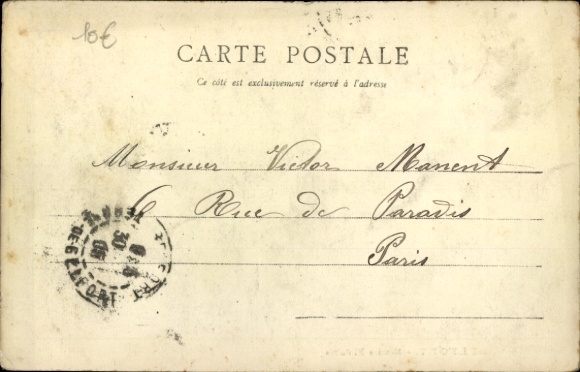 10€
CARTE POSTALE
Ce côté est exclusivement réservé à l'adresse
Monsieur Victor Manent
6 Rue de Paradis
Paris
30
05
DE BELFORT